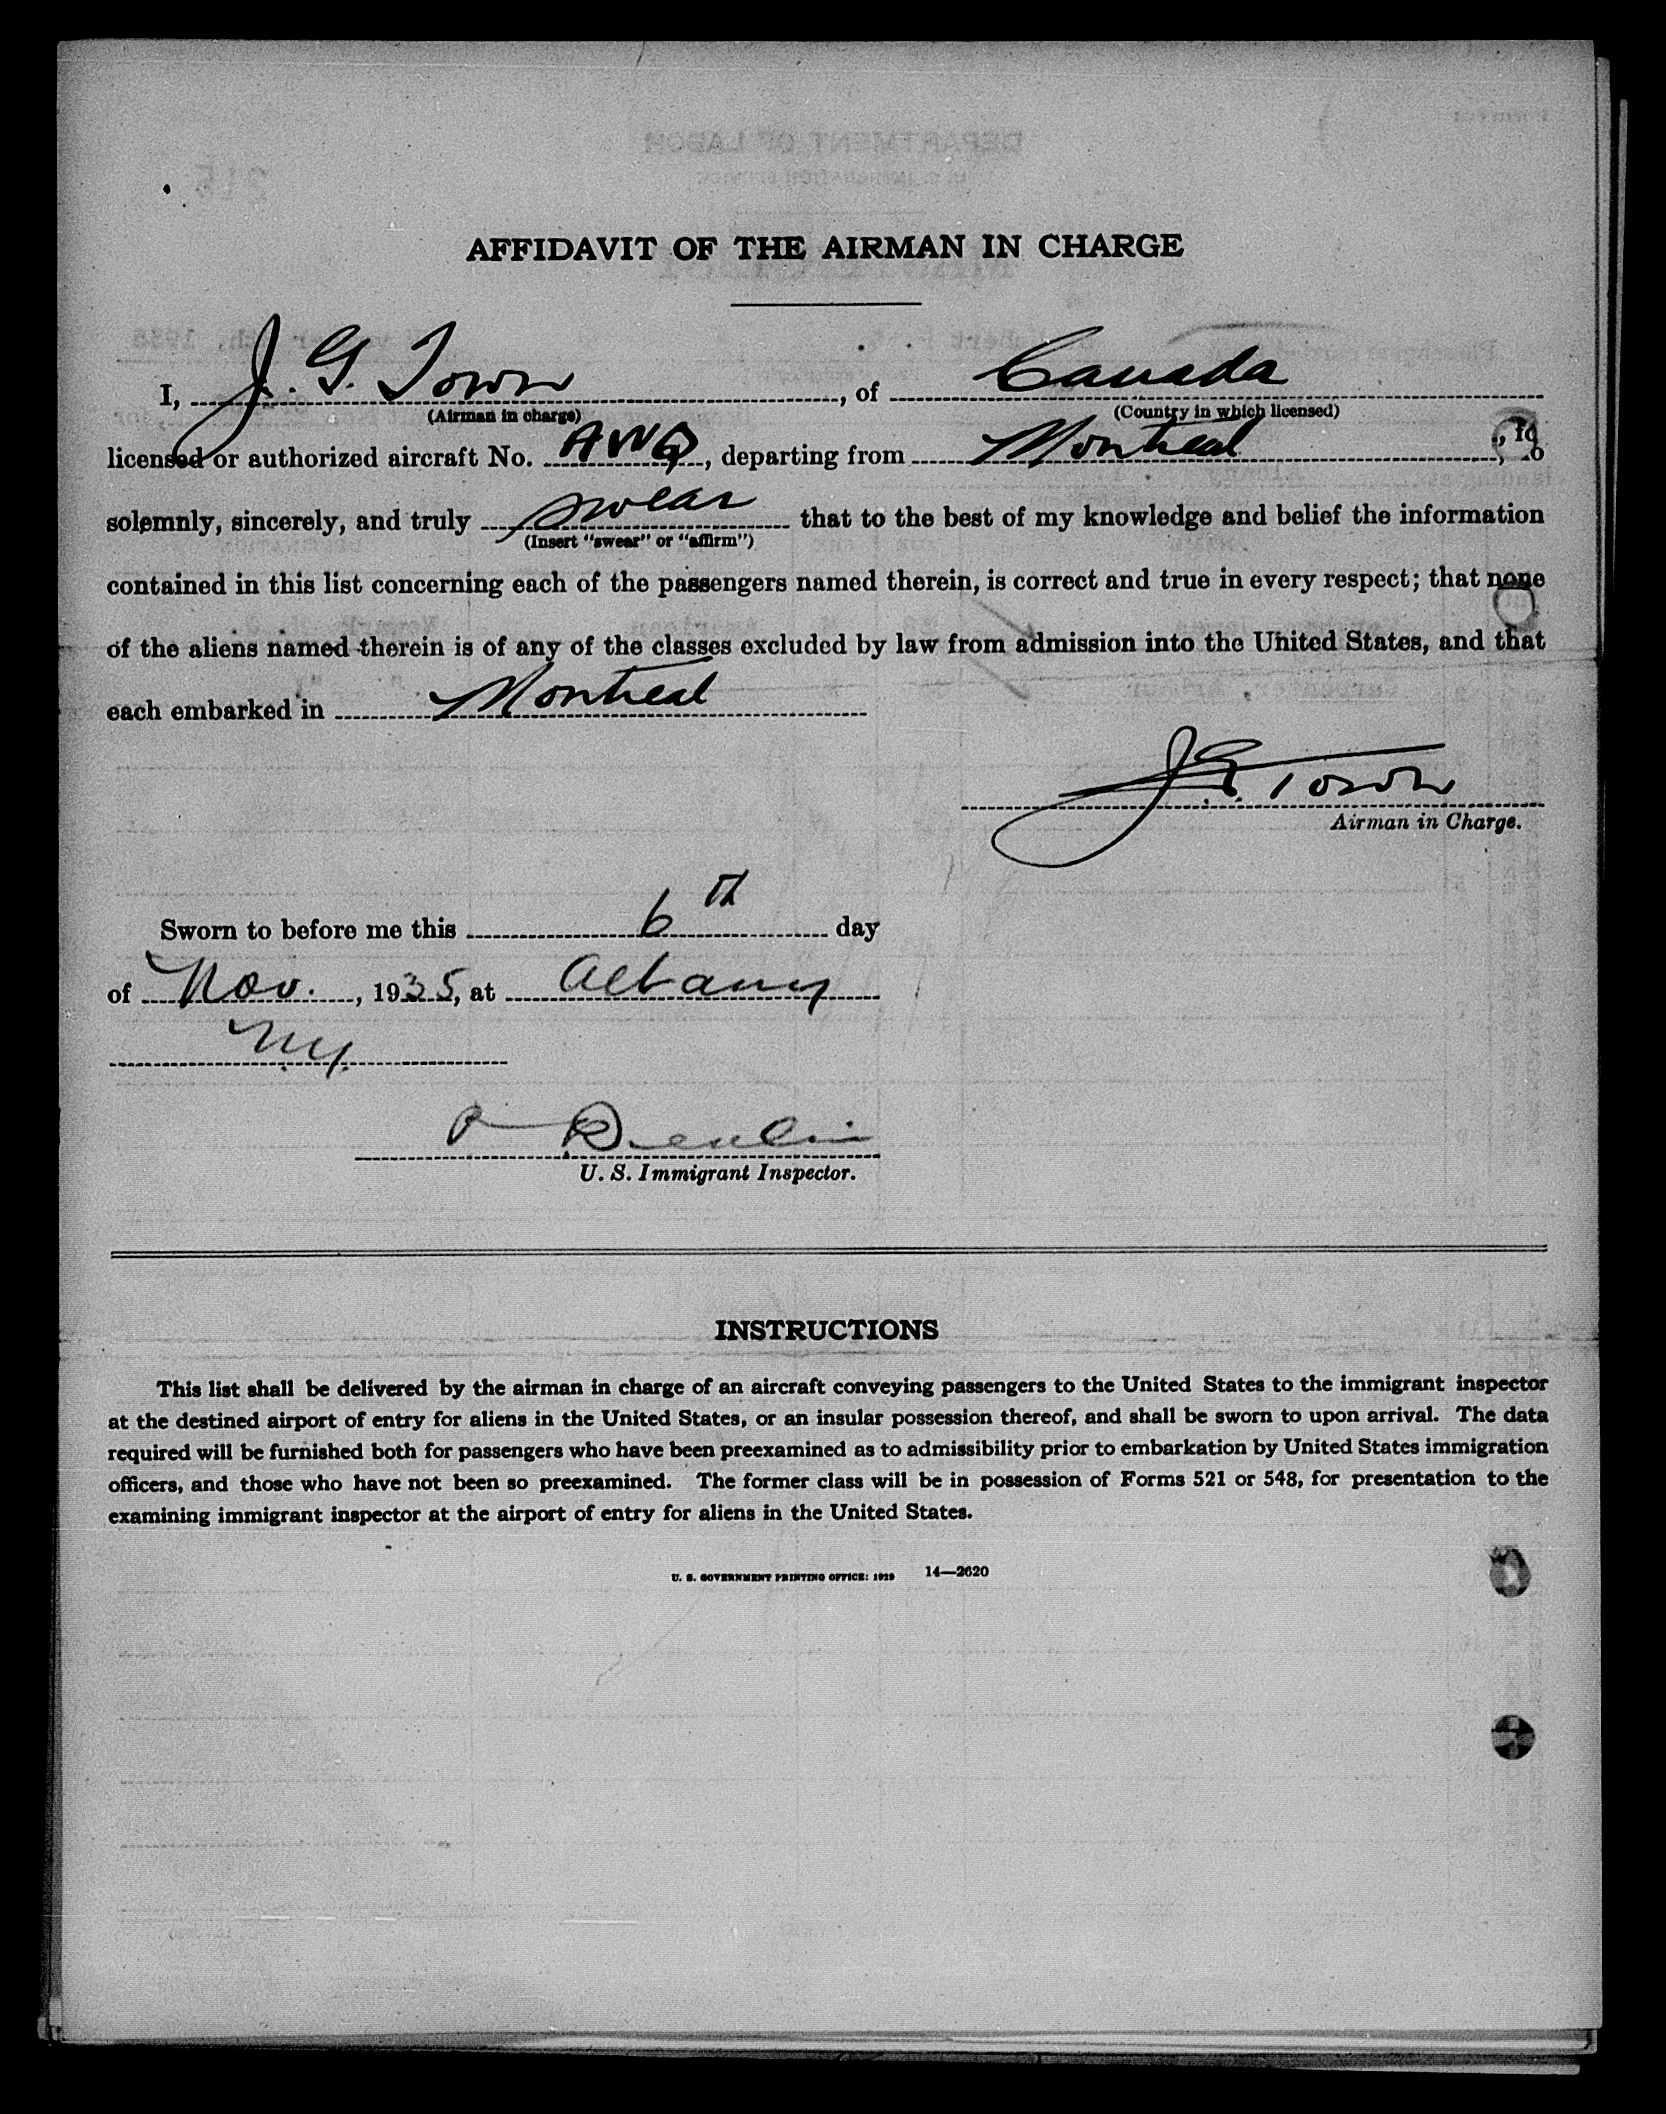 AFFIDAVIT OF THE AIRMAN IN CHARGE
I, J. G. Town, of Canada
(Airman in charge) (Country in which licensed)
licensed or authorized aircraft No. AWQ, departing from Montreal, do
solemnly, sincerely, and truly swear that to the best of my knowledge and belief the information
(Insert "swear" or "affirm")
contained in this list concerning each of the passengers named therein, is correct and true in every respect; that none
of the aliens named therein is of any of the classes excluded by law from admission into the United States, and that
each embarked in Montreal
J. G. Town
Airman in Charge.
Sworn to before me this 6th day
of Nov., 1935, at Albany
N.Y.
U. S. Immigrant Inspector.
INSTRUCTIONS
This list shall be delivered by the airman in charge of an aircraft conveying passengers to the United States to the immigrant inspector
at the destined airport of entry for aliens in the United States, or an insular possession thereof, and shall be sworn to upon arrival. The data
required will be furnished both for passengers who have been preexamined as to admissibility prior to embarkation by United States immigration
officers, and those who have not been so preexamined. The former class will be in possession of Forms 521 or 548, for presentation to the
examining immigrant inspector at the airport of entry for aliens in the United States.
U. S. GOVERNMENT PRINTING OFFICE: 1929 14—2620